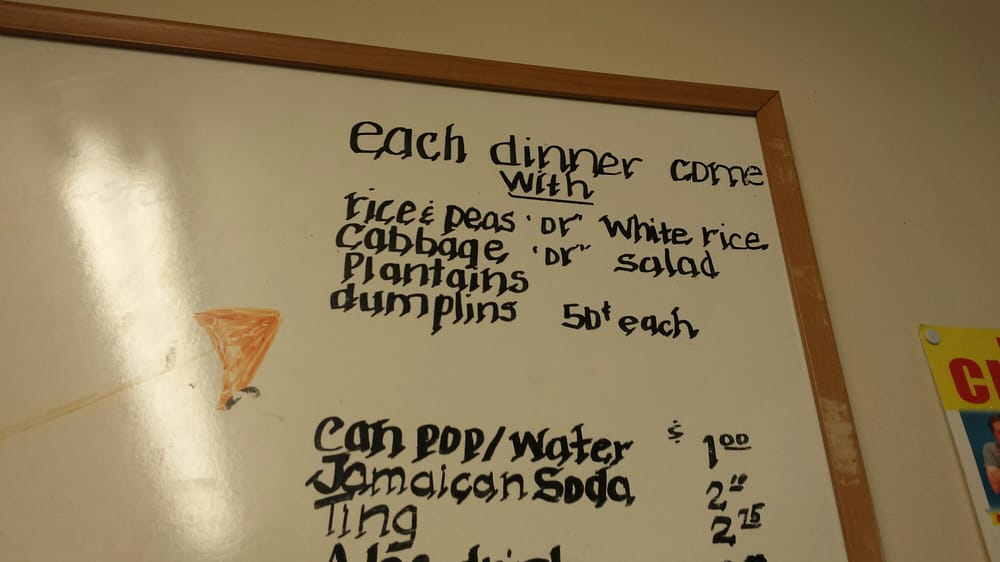 each dinner come
with
rice & peas 'or' White rice
Cabbage 'or" salad
Plantains
dumplins 50¢ each
Can pop/Water $ 1.00
Jamaican Soda 2.00
Ting 2.75